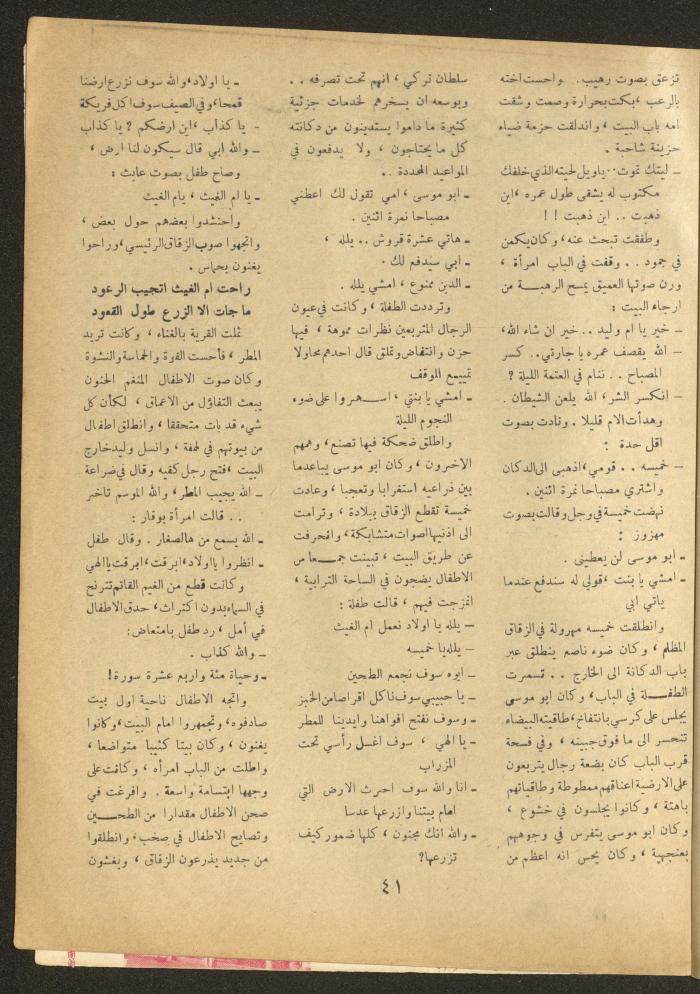 تزعق بصوت رهيب. واحست اخته
بالرعب ، بكت بحرارة وصمت وشقت
امه باب البيت ، واندلقت حزمة ضياء
حزينة شاحبة .
ـ ليتك تموت .. ياويل لحيته الذي خلفك
مكتوب له يشقى طول عمره ، اين
ذهبت .. اين ذهبت ! !
وطفقت تبحث عنه، وكان يكمن
في جمود .. وقفت في الباب امرأة ،
ورن صوتها العميق يمسح الرهبة من
ارجاء البيت :
ـ خير يا ام وليد .. خير ان شاء الله،
ـ الله يقصف عمره يا جارتي .. كسر
المصباح .. ننام في العتمة الليلة ?
ـ انكسر الشر، الله يلعن الشيطان .
وهدأت الام قليلا . ونادت بصوت
اقل حدة :
ـ خميسه .. قومي، اذهبي الى الدكان
واشتري مصباحا نمرة اثنين .
نهضت خميسة في وجل وقالت بصوت
مهزوز :
ـ ابو موسى لن يعطيني .
ـ امشي يا بنت ، قولي له سندفع عندما
ياتي ابي
وانطلقت خميسه مهرولة في الزقاق
المظلم ، وكان ضوء ناصع ينطلق عبر
باب الدكانة الى الخارج .. تسمرت
الطفلة في الباب ، وكان ابو موسى
يجلس على كرسي بانتفاخ، طاقيته البيضاء
تنحسر الى ما فوق جبينه ، وفي فسحة
قرب الباب كان بضعة رجال يتربعون
على الارضية اعناقهم ممطوطة وطاقياتهم
باهتة ، وكانوا يجلسون في خشوع ،
وكان ابو موسى يتفرس في وجوههم
بعنجهية ، وكان يحس انه اعظم من
سلطان تركي ، انهم تحت تصرفه ..
وبوسعه ان يسخرهم لخدمات جزئية
كثيرة ما داموا يستدينون من دكانته
كل ما يحتاجون ، ولا يدفعون في
المواعيد المحددة ..
ـ ابو موسى ، امي تقول لك اعطني
مصباحا نمرة اثنين .
ـ هاتي عشرة قروش .. يلله ،
ـ ابي سيدفع لك .
ـ الدين ممنوع ، امشي يلله .
وترددت الطفلة ، وكانت في عيون
الرجال المتربعين نظرات مموهة ، فيها
حزن وانتفاض وتملق قال احدهم محاولا
تمييع الموقف
ـ امشي يا بنتي ، اسهروا على ضوء
النجوم الليلة
واطلق ضحكة فيها تصنع، وهمهم
الاخرون ، وكان ابو موسى يباعد ما
بين ذراعيه استغرابا وتعجبا ، وعادت
خميسة تقطع الزقاق ببلادة ، وترامت
الى اذنيها اصوات متشابكة، وانحرفت
عن طريق البيت ، تبينت جمعا من
الاطفال يضجون في الساحة الترابية ،
انزجت فيهم ، قالت طفلة :
ـ يلله يا اولاد نعمل ام الغيث
ـ يلله يا خميسه
ـ ايوه سوف نجمع الطحين
ـ يا حبيبي سوف ناكل اقراصا من الخبز
ـ وسوف نفتح افواهنا وايدينا للمطر
ـ يا الهي ، سوف اغسل رأسي تحت
المزراب
ـ انا والله سوف احرث الارض التي
امام بيتنا وازرعها عدسا
ـ والله انك مجنون ، كلها ضمور كيف
تزرعها?
ـ يا اولاد، والله سوف نزرع ارضنا
قمحا، وفي الصيف سوف اكل فريكة
ـ يا كذاب ، اين ارضكم ? يا كذاب
ـ والله أبي قال سيكون لنا ارض ،
وصاح طفل بصوت عابث :
ـ يا ام الغيث ، يام الغيث
واحتشدوا بعضهم حول بعض ،
واتجهوا صوب الزقاق الرئيسي، وراحوا
يغنون بحماس .
راحت ام الغيث اتجيب الرعود
ما جات الا الزرع طول القعود
ثملت القرية بالغناء ، وكانت تريد
المطر ، فأحست القوة والحماسة والنشوة
وكان صوت الاطفال المنغم الحنون
يبعث التفاؤل من الاعماق ، لكأن كل
شيء قد بات متحققا ، وانطلق اطفال
من بيوتهم في لهفة ، وانسل وليد خارج
البيت ، فتح رجل كفيه وقال في ضراعة
ـ الله يجيب المطر ، والله الموسم تاخر
.. قالت امرأة بوقار :
ـ الله يسمع من هالصغار . وقال طفل
ـ انظروا يا اولاد، ابرقت، ابرقت يا الهي
وكانت قطع من الغيم القاتم تترنح
في السماء بدون اكتراث ، حدق الاطفال
في أمل ، رد طفل بامتعاض:
ـ والله كذاب .
ـ وحياة مئة واربع عشرة سورة !
واتجه الاطفال ناحية اول بيت
صادفوه ، وتجمهروا امام البيت، وكانوا
يغنون ، وكان بيتا كئيبا متواضعا ،
واطلت من الباب امرأه ، وكانت على
وجهها ابتسامة واسعة . وافرغت في
صحن الاطفال مقدارا من الطحين
وتصايح الاطفال في صخب، وانطلقوا
من جديد يذرعون الزقاق ، ويغشون
٤١